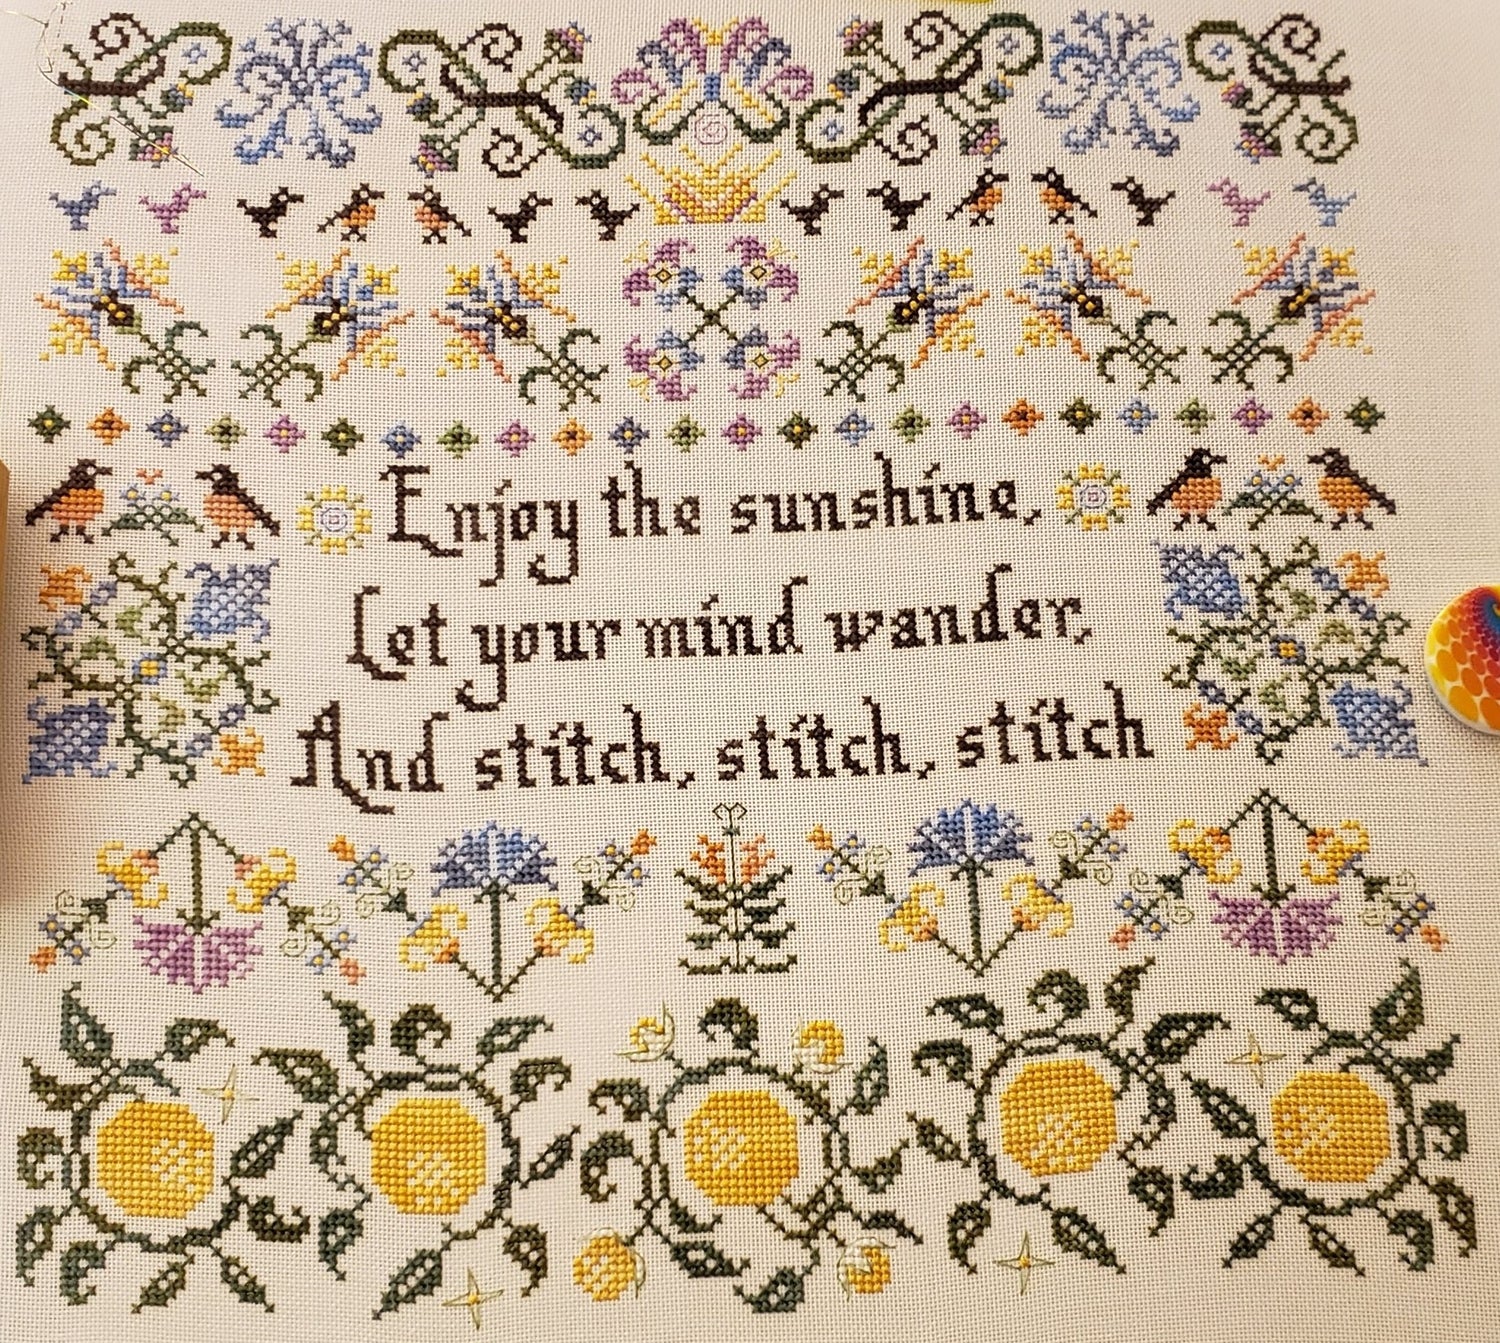 Enjoy the sunshine,
Let your mind wander,
And stitch, stitch, stitch